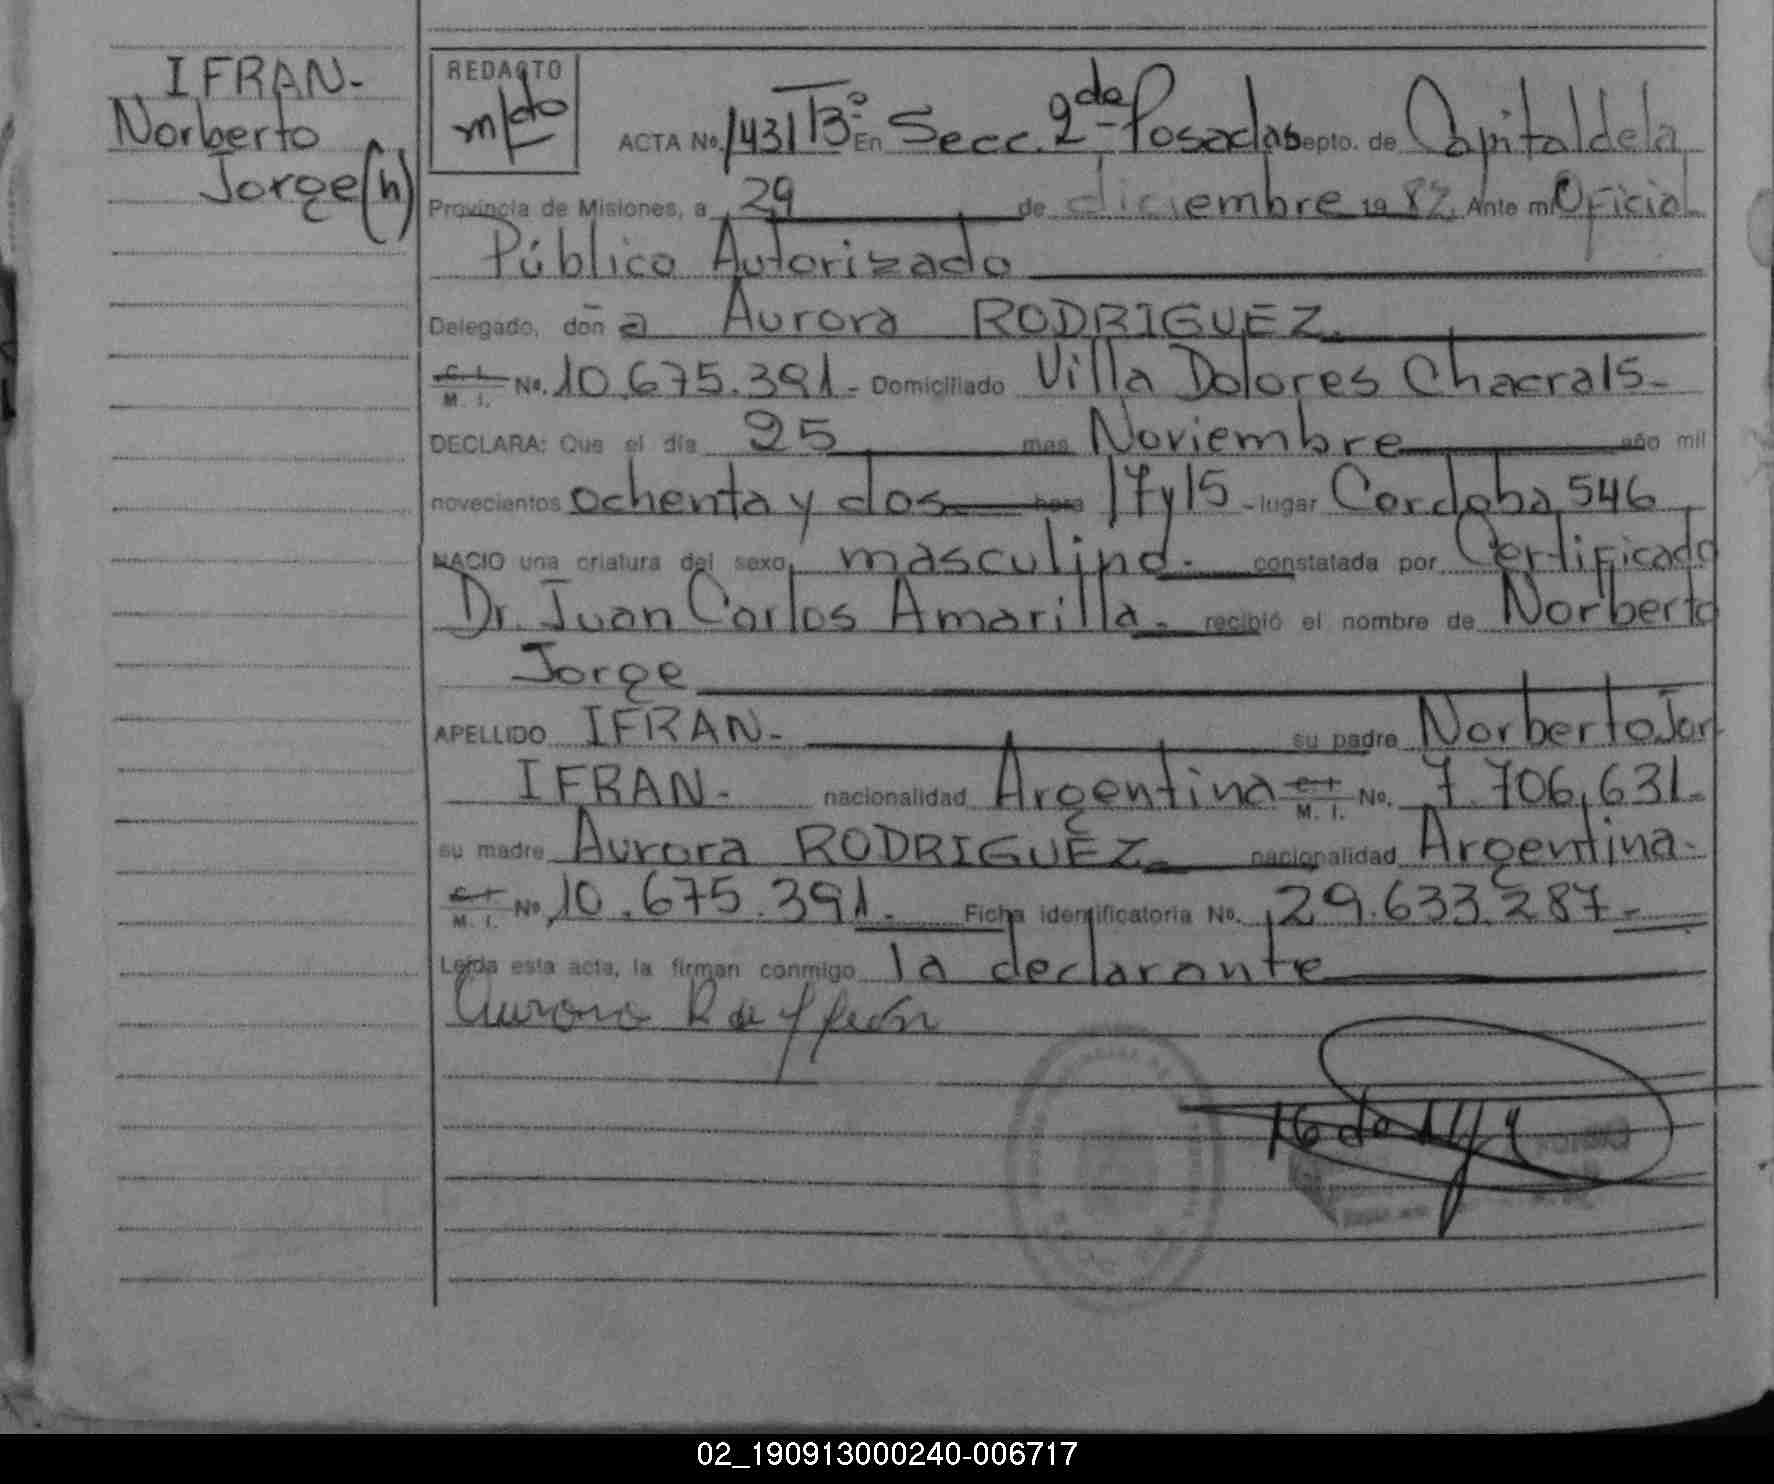 IFRAN-
Norberto
Jorge (h)
REDACTO
ACTA No. 1431 T3° En Secc. 2da- Posadas Depto. de Capital de la
Provincia de Misiones, a 29 de diciembre 1982. Ante mi Oficial
Público Autorizado
Delegado, doña Aurora RODRIGUEZ.
C. I. / M. I. No. 10.675.391.- Domiciliado Villa Dolores Chacra 15-
DECLARA: Que el día 25 mes Noviembre año mil
novecientos ochenta y dos hora 17 y 15 - lugar Cordoba 546
NACIO una criatura del sexo masculino.- constatada por Certificado
Dr. Juan Carlos Amarilla.- recibió el nombre de Norberto
Jorge
APELLIDO IFRAN- su padre Norberto Jor
IFRAN.- nacionalidad Argentina C. I. / M. I. No. 7.706.631.-
su madre Aurora RODRIGUEZ.- nacionalidad Argentina.-
C. I. / M. I. No. 10.675.391.- Ficha identificatoria No. 29.633.287-
Leída esta acta, la firman conmigo la declarante
Aurora R de Ifrán
02_190913000240-006717